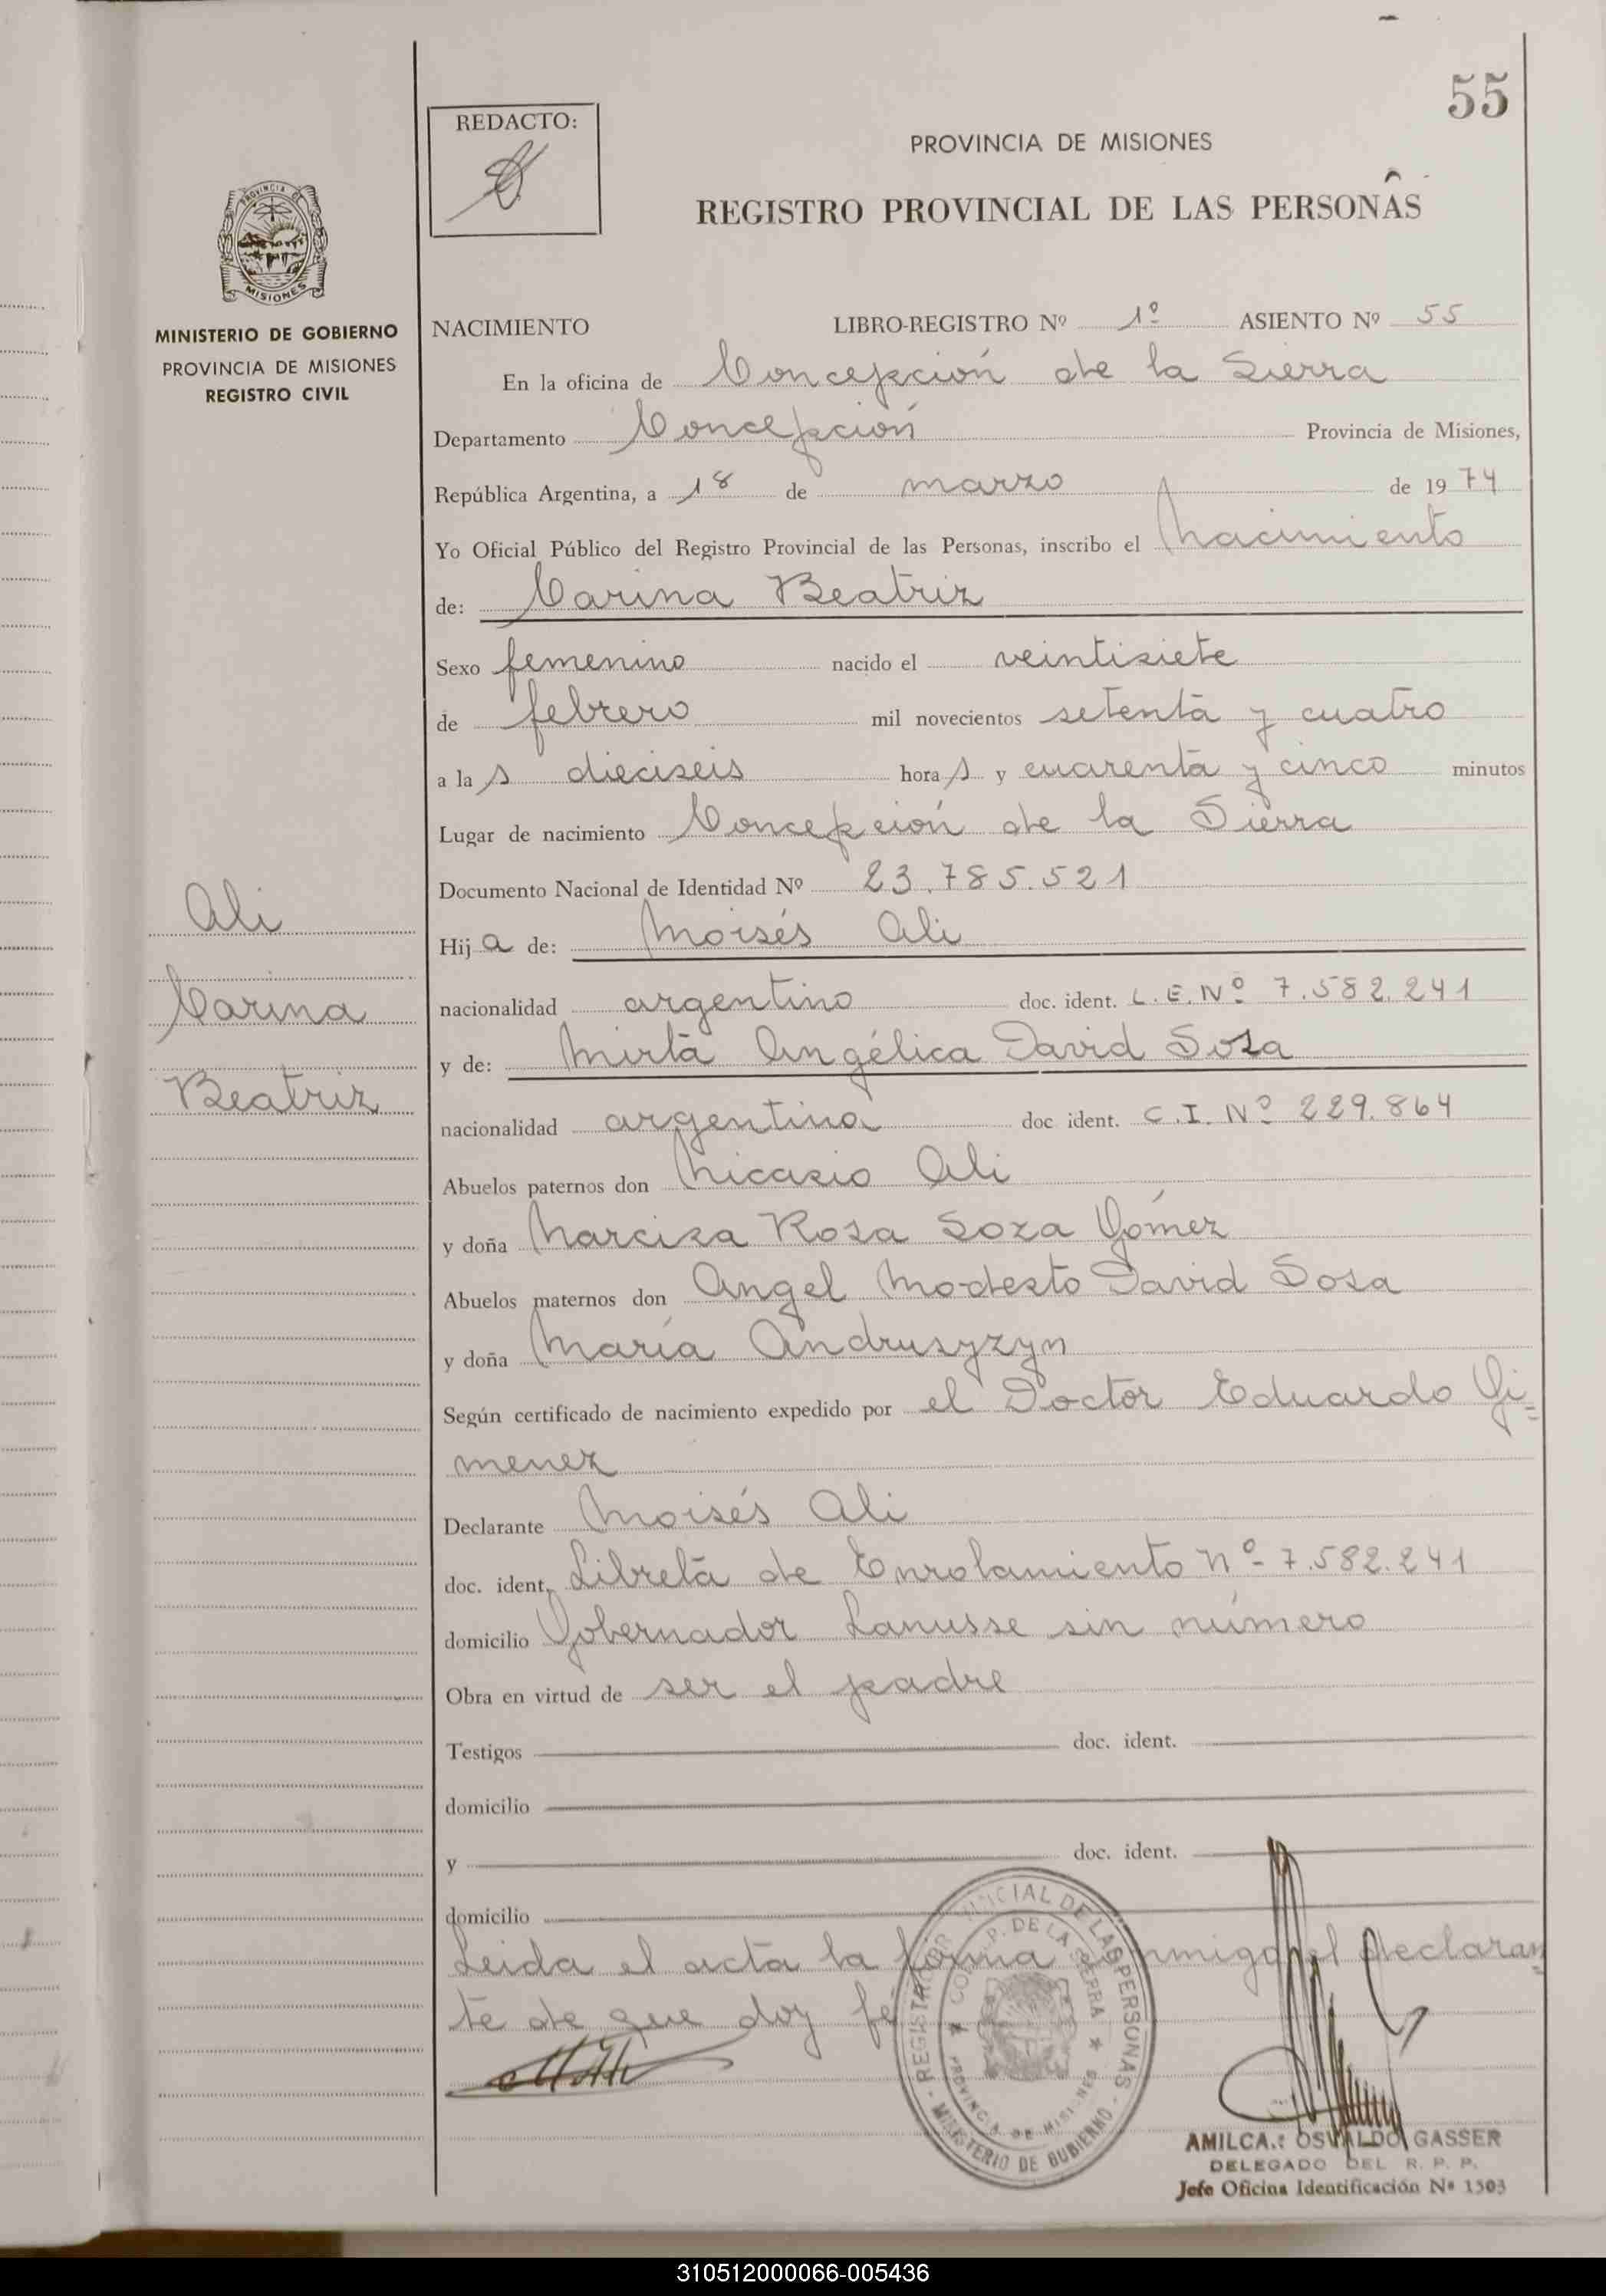 55
REDACTO:
PROVINCIA DE MISIONES
REGISTRO PROVINCIAL DE LAS PERSONAS
PROVINCIA DE
MISIONES
MINISTERIO DE GOBIERNO
PROVINCIA DE MISIONES
REGISTRO CIVIL
NACIMIENTO LIBRO-REGISTRO Nº 1º ASIENTO Nº 55
En la oficina de Concepción de la Sierra
Departamento Concepción Provincia de Misiones,
República Argentina, a 18 de marzo de 1974
Yo Oficial Público del Registro Provincial de las Personas, inscribo el Nacimiento
de: Carina Beatriz
Sexo femenino nacido el veintisiete
de febrero mil novecientos setenta y cuatro
a las dieciseis horas y cuarenta y cinco minutos
Lugar de nacimiento Concepción de la Sierra
Documento Nacional de Identidad Nº 23.785.521
Ali
Carina
Beatriz
Hija de: Moisés Ali
nacionalidad argentino doc. ident. L.E.Nº 7.582.241
y de: Mirta Angélica David Sosa
nacionalidad argentina doc ident. C.I. Nº 229.864
Abuelos paternos don Nicasio Ali
y doña Narcisa Rosa Soza Gómez
Abuelos maternos don Angel Modesto David Sosa
y doña María Andrusyzyn
Según certificado de nacimiento expedido por el Doctor Eduardo Gi=
menez
Declarante Moisés Ali
doc. ident. Libreta de Enrolamiento nº 7.582.241
domicilio Gobernador Lanusse sin número
Obra en virtud de ser el padre
Testigos doc. ident.
domicilio
y doc. ident.
domicilio
Leida el acta la firma conmigo el declaran
te de que doy fé
REGISTRO PROVINCIAL DE LAS PERSONAS
MINISTERIO DE GOBIERNO
DE LA SIERRA
PROVINCIA DE MISIONES
AMILCA.: OSVALDO GASSER
DELEGADO DEL R. P. P.
Jefe Oficina Identificación Nº 1503
310512000066-005436